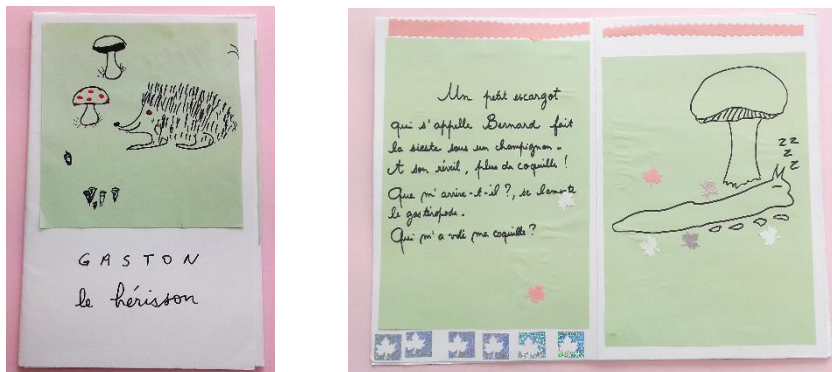 GASTON
le hérisson
Un petit escargot
qui s'appelle Bernard fait
la sieste sous un champignon.
A son réveil, plus de coquille !
Que m'arrive-t-il ?, se lamente
le gastéropode.
Qui m'a volé ma coquille ?
zz
z
z